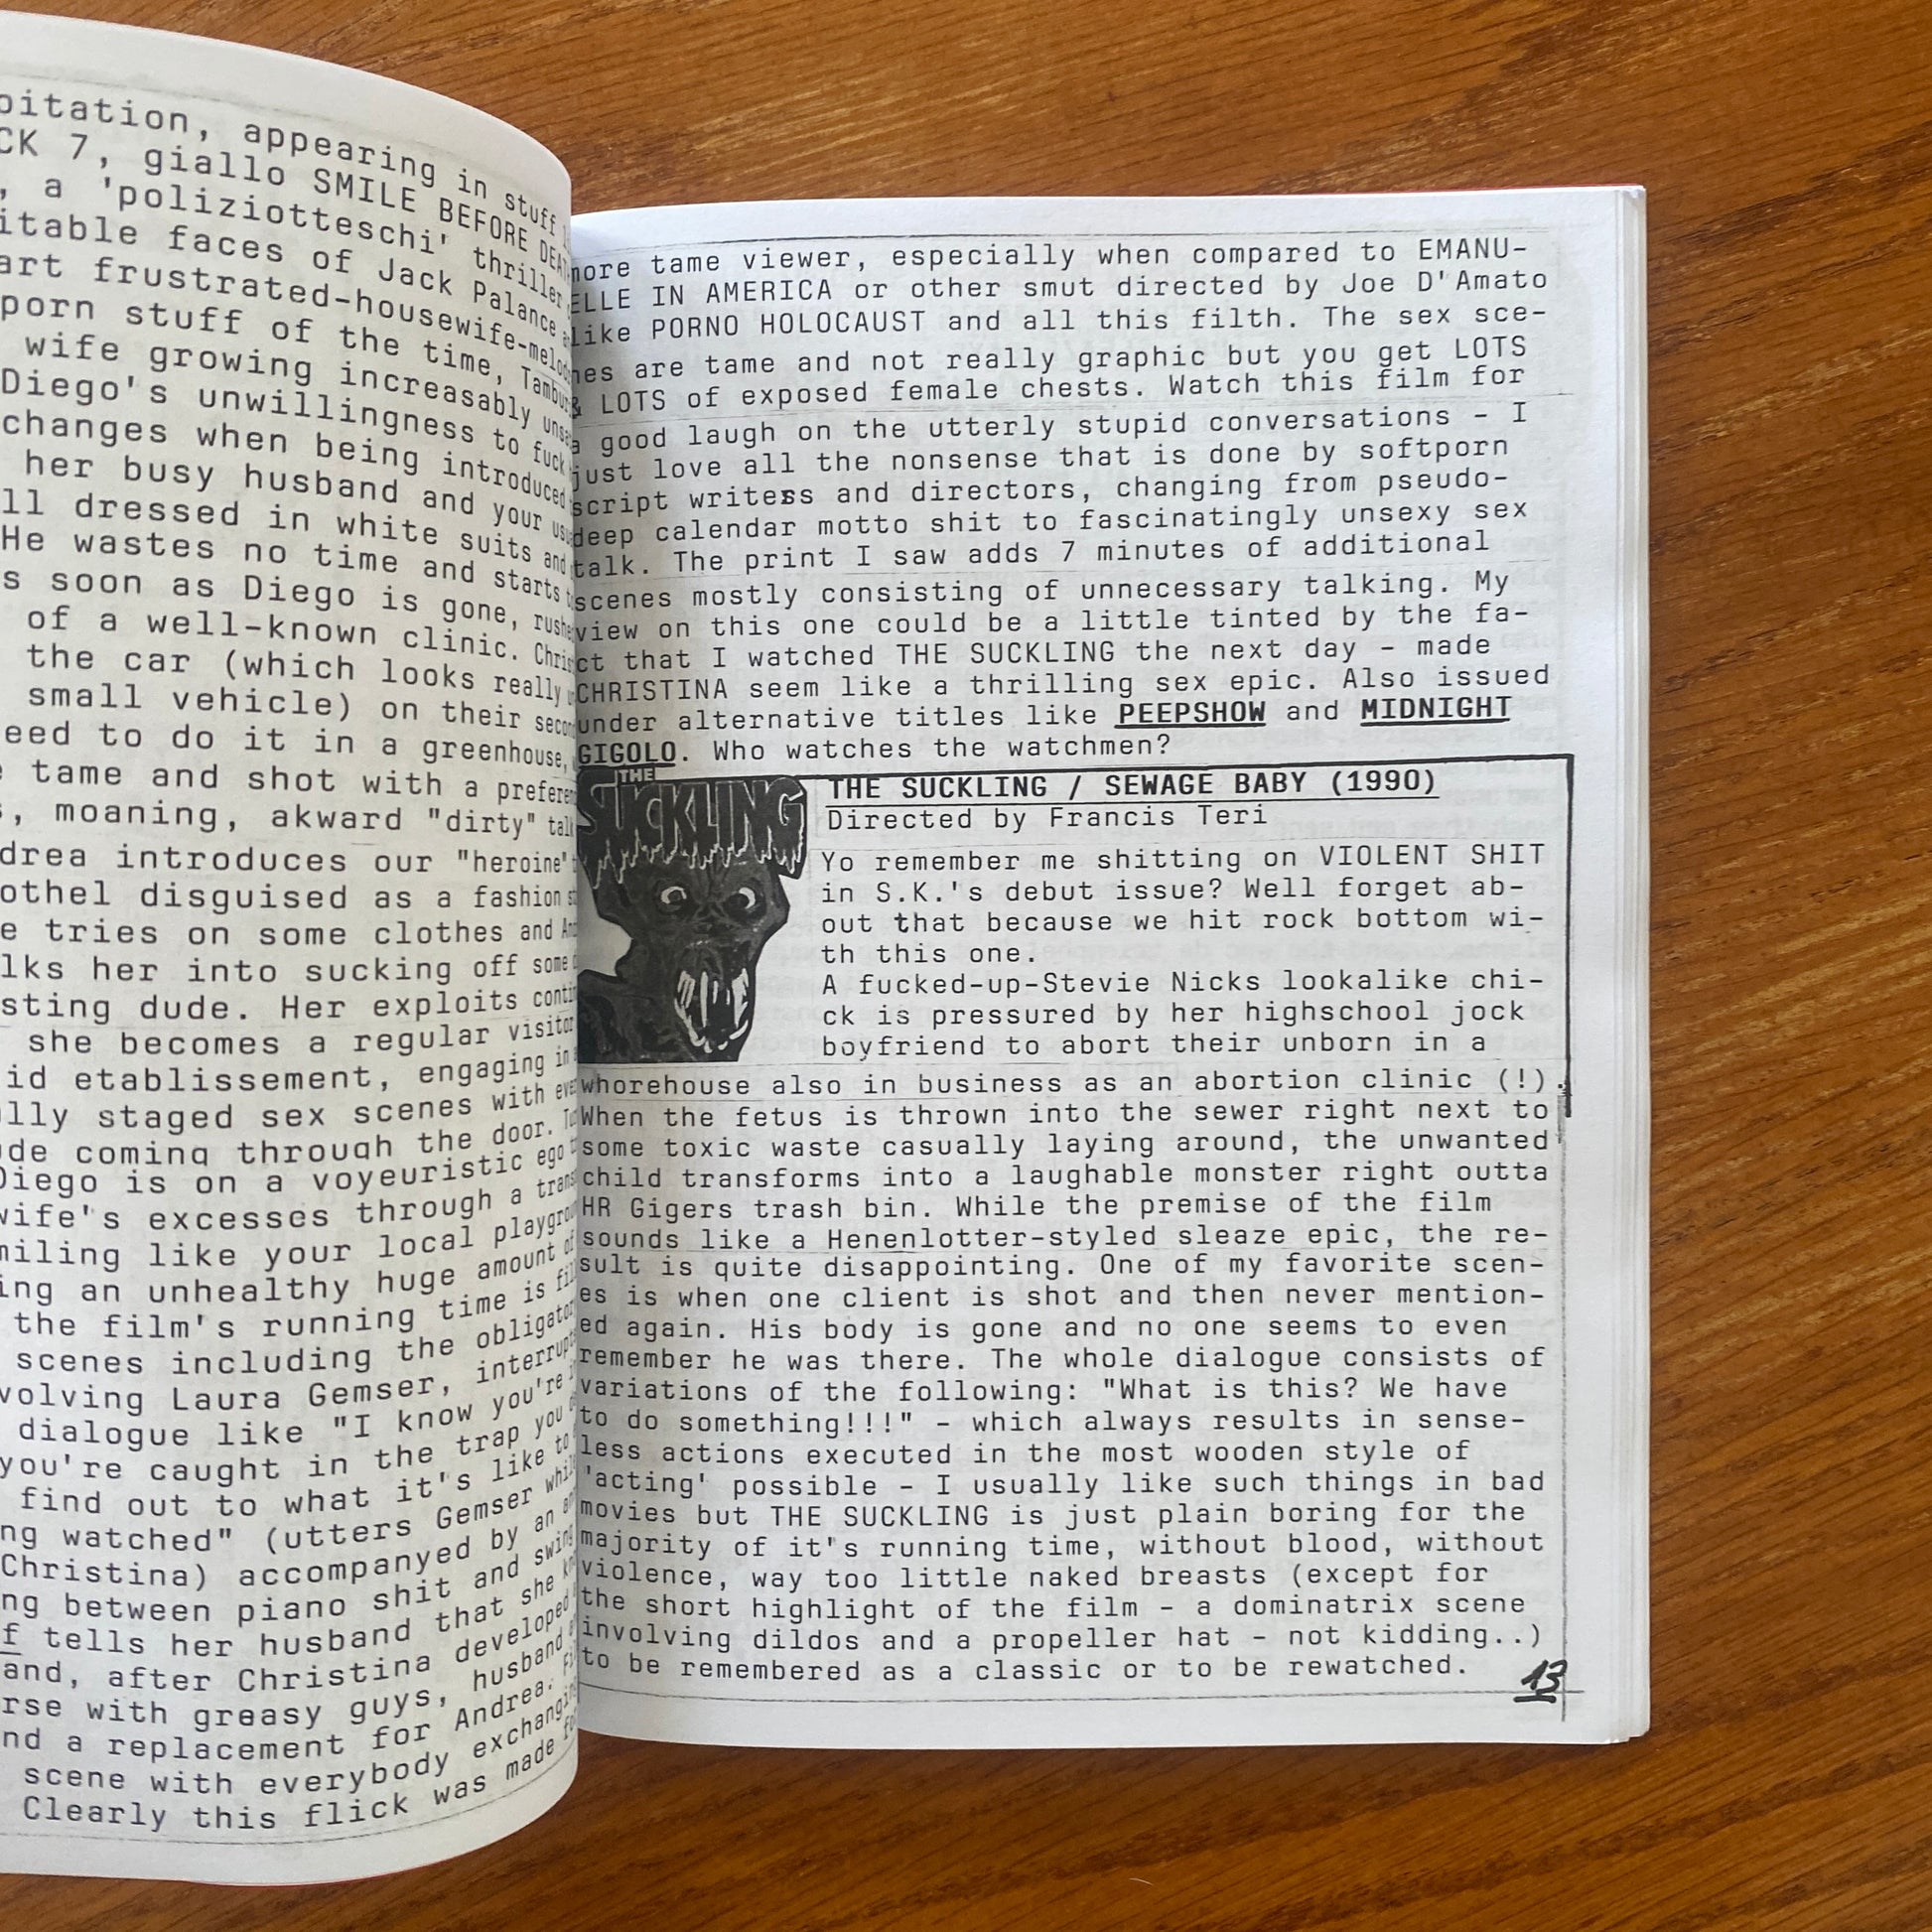 oitation, appearing in stuff
CK 7, giallo SMILE BEFORE DEAT
, a 'poliziotteschi' thriller
itable faces of Jack Palance
art frustrated-housewife-melod
porn stuff of the time, Tambur
wife growing increasably unsa
Diego's unwillingness to fuck
changes when being introduced
her busy husband and your us
ll dressed in white suits and
He wastes no time and starts
s soon as Diego is gone, rushe
of a well-known clinic. Chris
the car (which looks really
small vehicle) on their secon
eed to do it in a greenhouse,
e tame and shot with a preferen
s, moaning, akward "dirty" talk
drea introduces our "heroine"
othel disguised as a fashion
e tries on some clothes and An
lks her into sucking off some
sting dude. Her exploits contin
she becomes a regular visitor
id etablissement, engaging in
lly staged sex scenes with eve
ude coming through the door.
Diego is on a voyeuristic ego
wife's excesses through a trans
miling like your local playgrou
ing an unhealthy huge amount of
the film's running time is fil
scenes including the obligator
volving Laura Gemser, interrupt
dialogue like "I know you're
you're caught in the trap you
find out to what it's like to
ng watched" (utters Gemser while
Christina) accompanyed by an
ng between piano shit and swing
f tells her husband that she
and, after Christina developed
rse with greasy guys, husband
nd a replacement for Andrea.
scene with everybody exchangin
Clearly this flick was made
more tame viewer, especially when compared to EMANU-
ELLE IN AMERICA or other smut directed by Joe D'Amato
like PORNO HOLOCAUST and all this filth. The sex sce-
nes are tame and not really graphic but you get LOTS
& LOTS of exposed female chests. Watch this film for
a good laugh on the utterly stupid conversations - I
just love all the nonsense that is done by softporn
script writers and directors, changing from pseudo-
deep calendar motto shit to fascinatingly unsexy sex
talk. The print I saw adds 7 minutes of additional
scenes mostly consisting of unnecessary talking. My
view on this one could be a little tinted by the fa-
ct that I watched THE SUCKLING the next day - made
CHRISTINA seem like a thrilling sex epic. Also issued
under alternative titles like PEEPSHOW and MIDNIGHT
GIGOLO. Who watches the watchmen?
THE
SUCKLING
THE SUCKLING / SEWAGE BABY (1990)
Directed by Francis Teri
Yo remember me shitting on VIOLENT SHIT
in S.K.'s debut issue? Well forget ab-
out that because we hit rock bottom wi-
th this one.
A fucked-up-Stevie Nicks lookalike chi-
ck is pressured by her highschool jock
boyfriend to abort their unborn in a
whorehouse also in business as an abortion clinic (!).
When the fetus is thrown into the sewer right next to
some toxic waste casually laying around, the unwanted
child transforms into a laughable monster right outta
HR Gigers trash bin. While the premise of the film
sounds like a Henenlotter-styled sleaze epic, the re-
sult is quite disappointing. One of my favorite scen-
es is when one client is shot and then never mention-
ed again. His body is gone and no one seems to even
remember he was there. The whole dialogue consists of
variations of the following: "What is this? We have
to do something!!!" - which always results in sense-
less actions executed in the most wooden style of
'acting' possible - I usually like such things in bad
movies but THE SUCKLING is just plain boring for the
majority of it's running time, without blood, without
violence, way too little naked breasts (except for
the short highlight of the film - a dominatrix scene
involving dildos and a propeller hat - not kidding..)
to be remembered as a classic or to be rewatched.
13